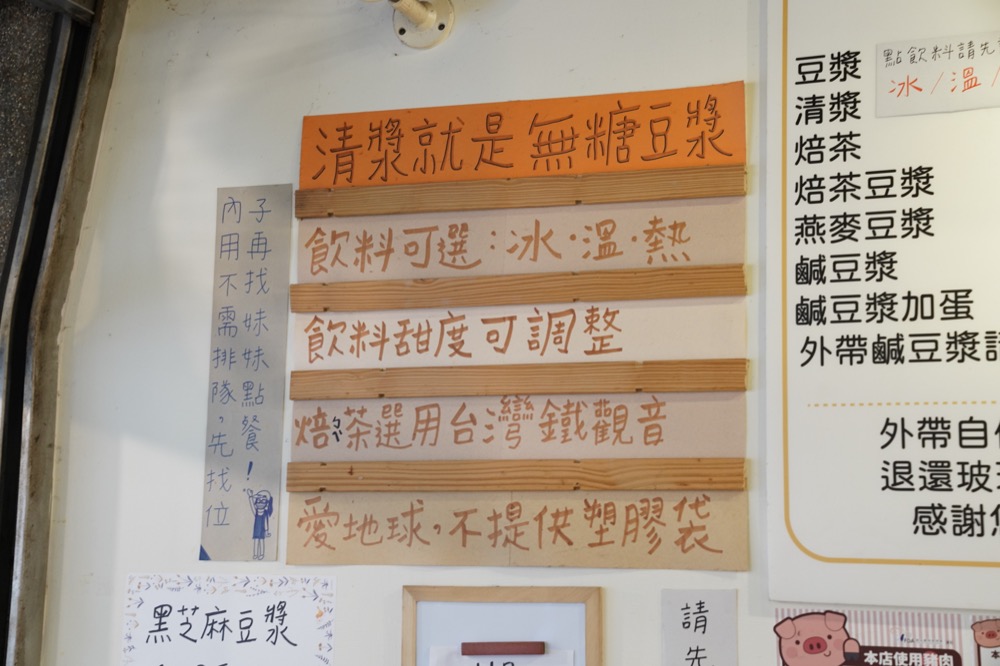 清漿就是無糖豆漿
飲料可選：冰·溫·熱
飲料甜度可調整
焙ㄅㄟˋ茶選用台灣鐵觀音
愛地球，不提供塑膠袋
內用不需排隊，先找位
子再找妹妹點餐！
黑芝麻豆漿
請先
豆漿
清漿
焙茶
焙茶豆漿
燕麥豆漿
鹹豆漿
鹹豆漿加蛋
外帶鹹豆漿
點飲料請先
冰/溫/
外帶自
退還玻
感謝
本店使用豬肉